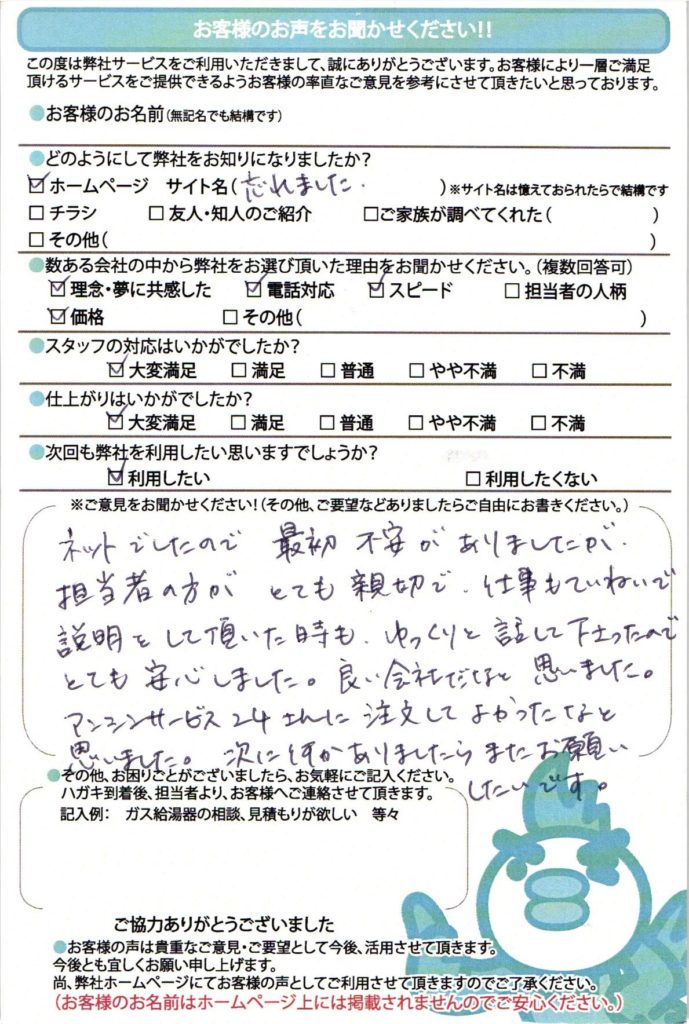 お客様のお声をお聞かせください!!
この度は弊社サービスをご利用いただきまして、誠にありがとうございます。お客様により一層ご満足
頂けるサービスをご提供できるようお客様の率直なご意見を参考にさせて頂きたいと思っております。
●お客様のお名前(無記名でも結構です)
●どのようにして弊社をお知りになりましたか?
☑ホームページ サイト名(忘れました.)※サイト名は憶えておられたらで結構です
□チラシ □友人・知人のご紹介 □ご家族が調べてくれた( )
□その他( )
●数ある会社の中から弊社をお選び頂いた理由をお聞かせください。(複数回答可)
☑理念・夢に共感した ☑電話対応 ☑スピード □担当者の人柄
☑価格 □その他( )
●スタッフの対応はいかがでしたか?
☑大変満足 □満足 □普通 □やや不満 □不満
●仕上がりはいかがでしたか?
☑大変満足 □満足 □普通 □やや不満 □不満
●次回も弊社を利用したい思いますでしょうか?
☑利用したい □利用したくない
※ご意見をお聞かせください!(その他、ご要望などありましたらご自由にお書きください。)
ネットでしたので 最初 不安がありましたが、
担当者の方が とても親切で、仕事もていねいで
説明をして頂いた時も、ゆっくりと話して下さったので
とても安心しました。良い会社だなと思いました。
アンシンサービス24さんに注文してよかったなと
思いました。次に何かありましたらまたお願い
したいです。
●その他、お困りごとがございましたら、お気軽にご記入ください。
ハガキ到着後、担当者より、お客様へご連絡させて頂きます。
記入例: ガス給湯器の相談、見積もりが欲しい 等々
ご協力ありがとうございました
●お客様の声は貴重なご意見・ご要望として今後、活用させて頂きます。
今後とも宜しくお願い申し上げます。
尚、弊社ホームページにてお客様の声としてご利用させて頂きますのでご了承ください。
(お客様のお名前はホームページ上には掲載されませんのでご安心ください。)